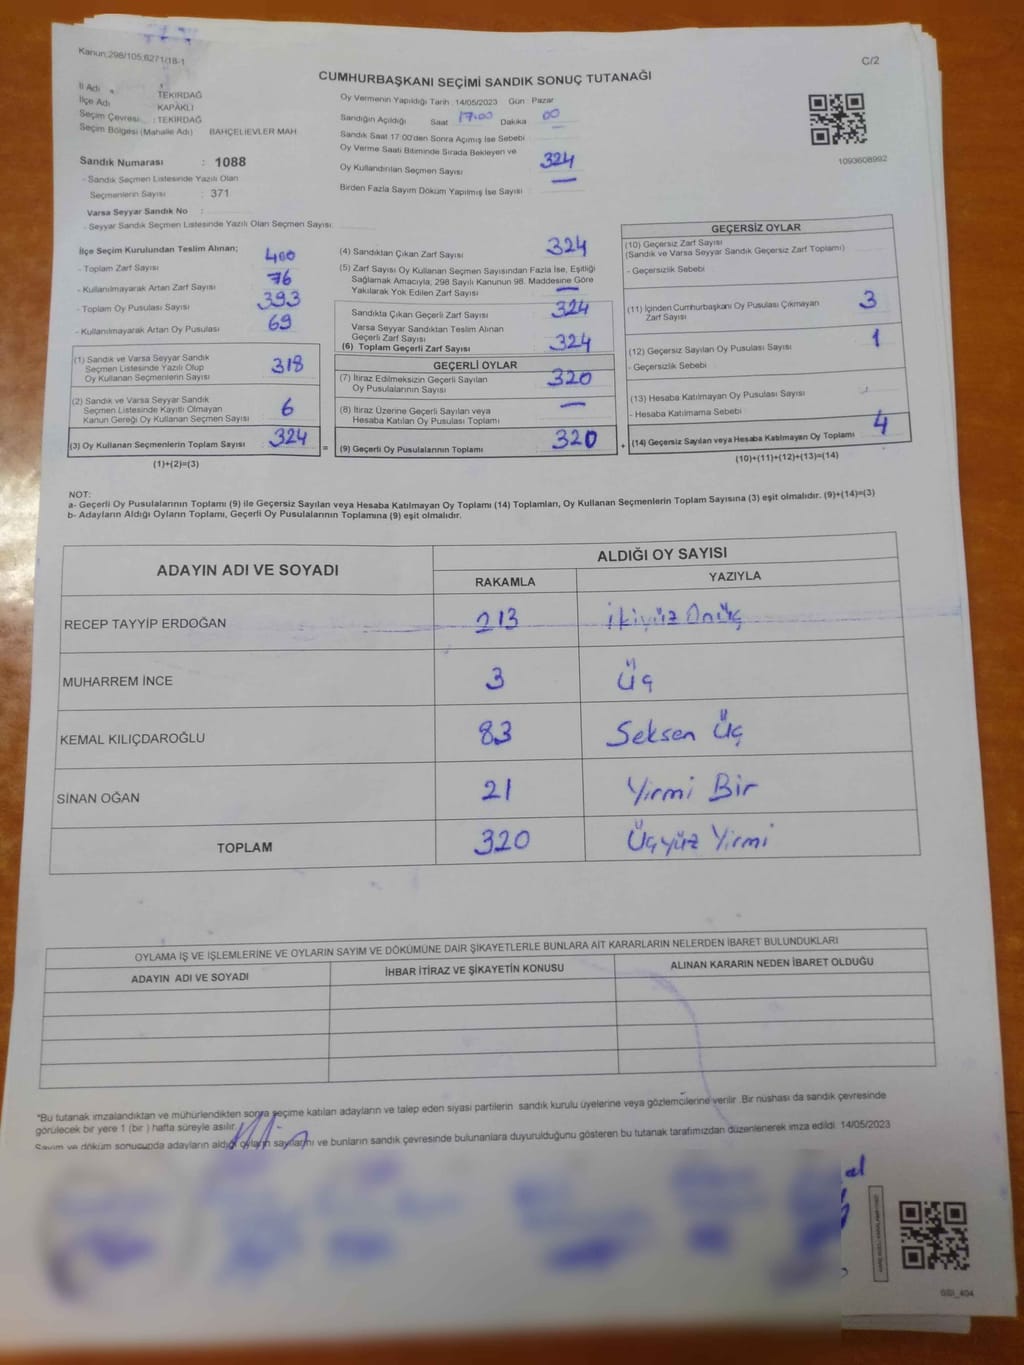 Kanun:298/105,6271/18-1
C/2
CUMHURBAŞKANI SEÇİMİ SANDIK SONUÇ TUTANAĞI
İl Adı : TEKİRDAĞ
İlçe Adı KAPAKLI
Seçim Çevresi : TEKİRDAĞ
Seçim Bölgesi (Mahalle Adı) BAHÇELİEVLER MAH
Sandık Numarası : 1088
- Sandık Seçmen Listesinde Yazılı Olan
Seçmenlerin Sayısı : 371
Varsa Seyyar Sandık No :
- Seyyar Sandık Seçmen Listesinde Yazılı Olan Seçmen Sayısı:
Oy Vermenin Yapıldığı Tarih :14/05/2023 Gün : Pazar
Sandığın Açıldığı Saat 17:00 Dakika 00
Sandık Saat 17:00'den Sonra Açılmış İse Sebebi
Oy Verme Saati Bitiminde Sırada Bekleyen ve
Oy Kullandırılan Seçmen Sayısı 324
Birden Fazla Sayım Döküm Yapılmış İse Sayısı : —
1093608992
İlçe Seçim Kurulundan Teslim Alınan;
- Toplam Zarf Sayısı 400
- Kullanılmayarak Artan Zarf Sayısı 76
- Toplam Oy Pusulası Sayısı 393
- Kullanılmayarak Artan Oy Pusulası 69
(1) Sandık ve Varsa Seyyar Sandık
Seçmen Listesinde Yazılı Olup
Oy Kullanan Seçmenlerin Sayısı 318
(2) Sandık ve Varsa Seyyar Sandık
Seçmen Listesinde Kayıtlı Olmayan
Kanun Gereği Oy Kullanan Seçmen Sayısı 6
(3) Oy Kullanan Seçmenlerin Toplam Sayısı 324
(1)+(2)=(3)
=
(4) Sandıktan Çıkan Zarf Sayısı 324
(5) Zarf Sayısı Oy Kullanan Seçmen Sayısından Fazla İse, Eşitliği
Sağlamak Amacıyla, 298 Sayılı Kanunun 98. Maddesine Göre
Yakılarak Yok Edilen Zarf Sayısı —
Sandıkta Çıkan Geçerli Zarf Sayısı 324
Varsa Seyyar Sandıktan Teslim Alınan
Geçerli Zarf Sayısı
(6) Toplam Geçerli Zarf Sayısı 324
GEÇERLİ OYLAR
(7) İtiraz Edilmeksizin Geçerli Sayılan
Oy Pusulalarının Sayısı 320
(8) İtiraz Üzerine Geçerli Sayılan veya
Hesaba Katılan Oy Pusulası Toplamı —
(9) Geçerli Oy Pusulalarının Toplamı 320
+
GEÇERSİZ OYLAR
(10) Geçersiz Zarf Sayısı
(Sandık ve Varsa Seyyar Sandık Geçersiz Zarf Toplamı)
- Geçersizlik Sebebi
(11) İçinden Cumhurbaşkanı Oy Pusulası Çıkmayan
Zarf Sayısı 3
(12) Geçersiz Sayılan Oy Pusulası Sayısı 1
- Geçersizlik Sebebi
(13) Hesaba Katılmayan Oy Pusulası Sayısı
- Hesaba Katılmama Sebebi
(14) Geçersiz Sayılan veya Hesaba Katılmayan Oy Toplamı 4
(10)+(11)+(12)+(13)=(14)
NOT:
a- Geçerli Oy Pusulalarının Toplamı (9) ile Geçersiz Sayılan veya Hesaba Katılmayan Oy Toplamı (14) Toplamları, Oy Kullanan Seçmenlerin Toplam Sayısına (3) eşit olmalıdır. (9)+(14)=(3)
b- Adayların Aldığı Oyların Toplamı, Geçerli Oy Pusulalarının Toplamına (9) eşit olmalıdır.
ADAYIN ADI VE SOYADI ALDIĞI OY SAYISI
RAKAMLA YAZIYLA
RECEP TAYYİP ERDOĞAN 213 İkiyüz Onüç
MUHARREM İNCE 3 Üç
KEMAL KILIÇDAROĞLU 83 Seksen Üç
SİNAN OĞAN 21 Yirmi Bir
TOPLAM 320 Üçyüz Yirmi
OYLAMA İŞ VE İŞLEMLERİNE VE OYLARIN SAYIM VE DÖKÜMÜNE DAİR ŞİKAYETLERLE BUNLARA AİT KARARLARIN NELERDEN İBARET BULUNDUKLARI
ADAYIN ADI VE SOYADI İHBAR İTİRAZ VE ŞİKAYETİN KONUSU ALINAN KARARIN NEDEN İBARET OLDUĞU
*Bu tutanak imzalandıktan ve mühürlendikten sonra seçime katılan adayların ve talep eden siyasi partilerin sandık kurulu üyelerine veya gözlemcilerine verilir .Bir nüshası da sandık çevresinde
görülecek bir yere 1 (bir ) hafta süreyle asılır.
Sayım ve döküm sonucunda adayların aldığı oyların sayılarını ve bunların sandık çevresinde bulunanlara duyurulduğunu gösteren bu tutanak tarafımızdan düzenlenerek imza edildi. 14/05/2023
GSI_404